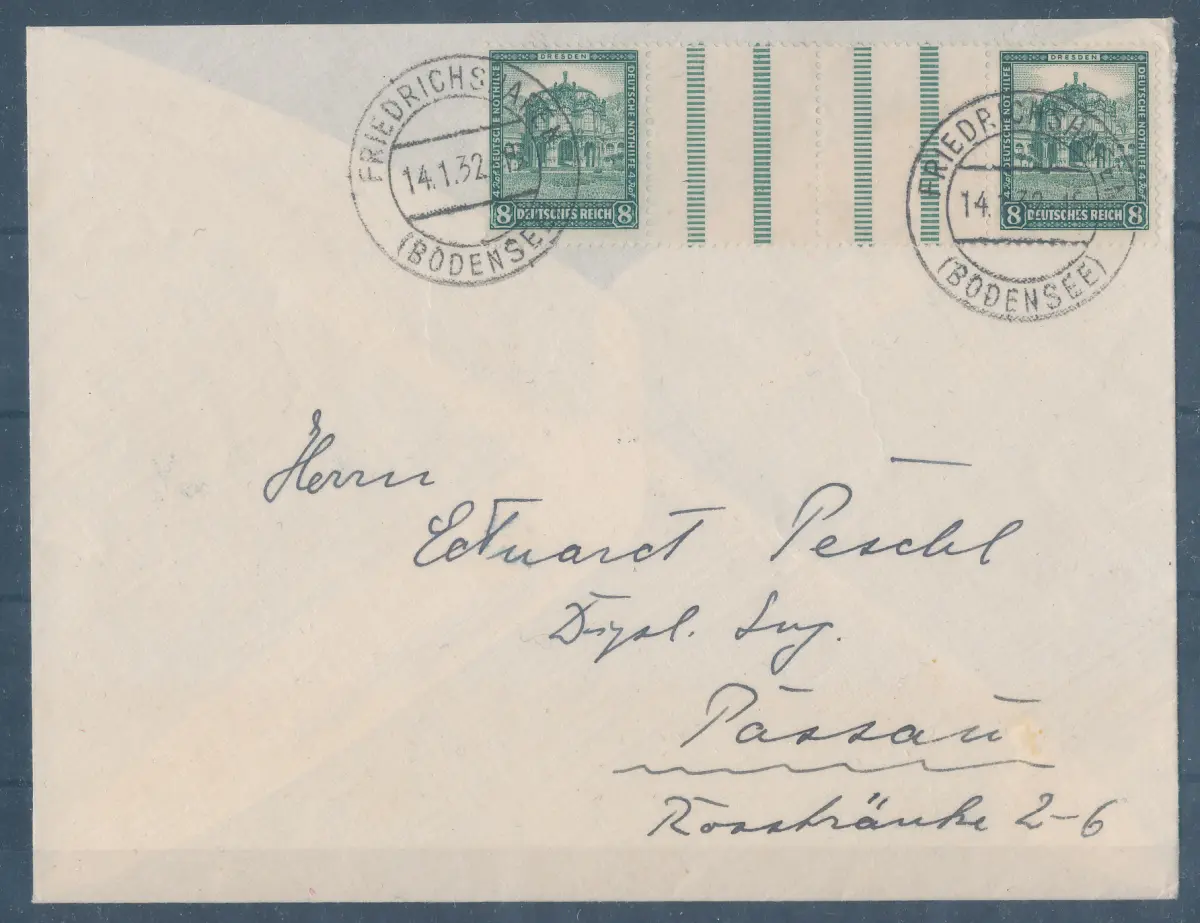 DRESDEN
DEUTSCHE NOTHILFE
DEUTSCHE NOTHILFE
8 DEUTSCHES REICH 8
FRIEDRICHSHAFEN
14.1.32
(BODENSEE)
DRESDEN
DEUTSCHE NOTHILFE
DEUTSCHE NOTHILFE
8 DEUTSCHES REICH 8
14.
(BODENSEE)
Herrn
Eduard Peschl
Dipl. Ing.
Passau
Rosstränke 2-6